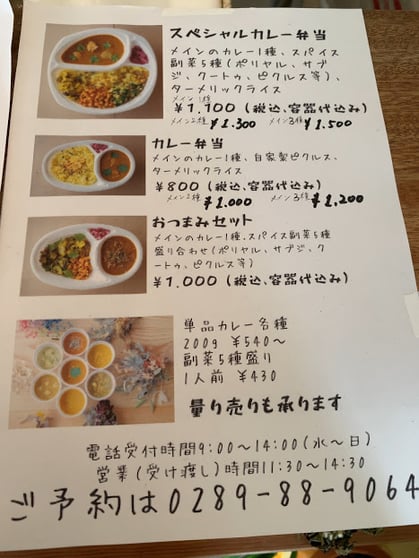 スペシャルカレー弁当
メインのカレー1種、スパイス
副菜5種(ポリヤル、サブ
ジ、クートゥ、ピクルス等)、
ターメリックライス
メイン1種
¥1,100(税込、容器代込み)
メイン2種 ¥1,300 メイン3種 ¥1,500
カレー弁当
メインのカレー1種、自家製ピクルス、
ターメリックライス
¥800(税込、容器代込み)
メイン2種 ¥1,000 メイン3種 ¥1,200
おつまみセット
メインのカレー1種、スパイス副菜5種
盛り合わせ(ポリヤル、サブジ、ク
ートゥ、ピクルス等)
¥1,000(税込、容器代込み)
単品カレー各種
200g ¥540〜
副菜5種盛り
1人前 ¥430
量り売りも承ります
電話受付時間9:00〜14:00(水〜日)
営業(受け渡し)時間11:30〜14:30
ご予約は0289-88-9064